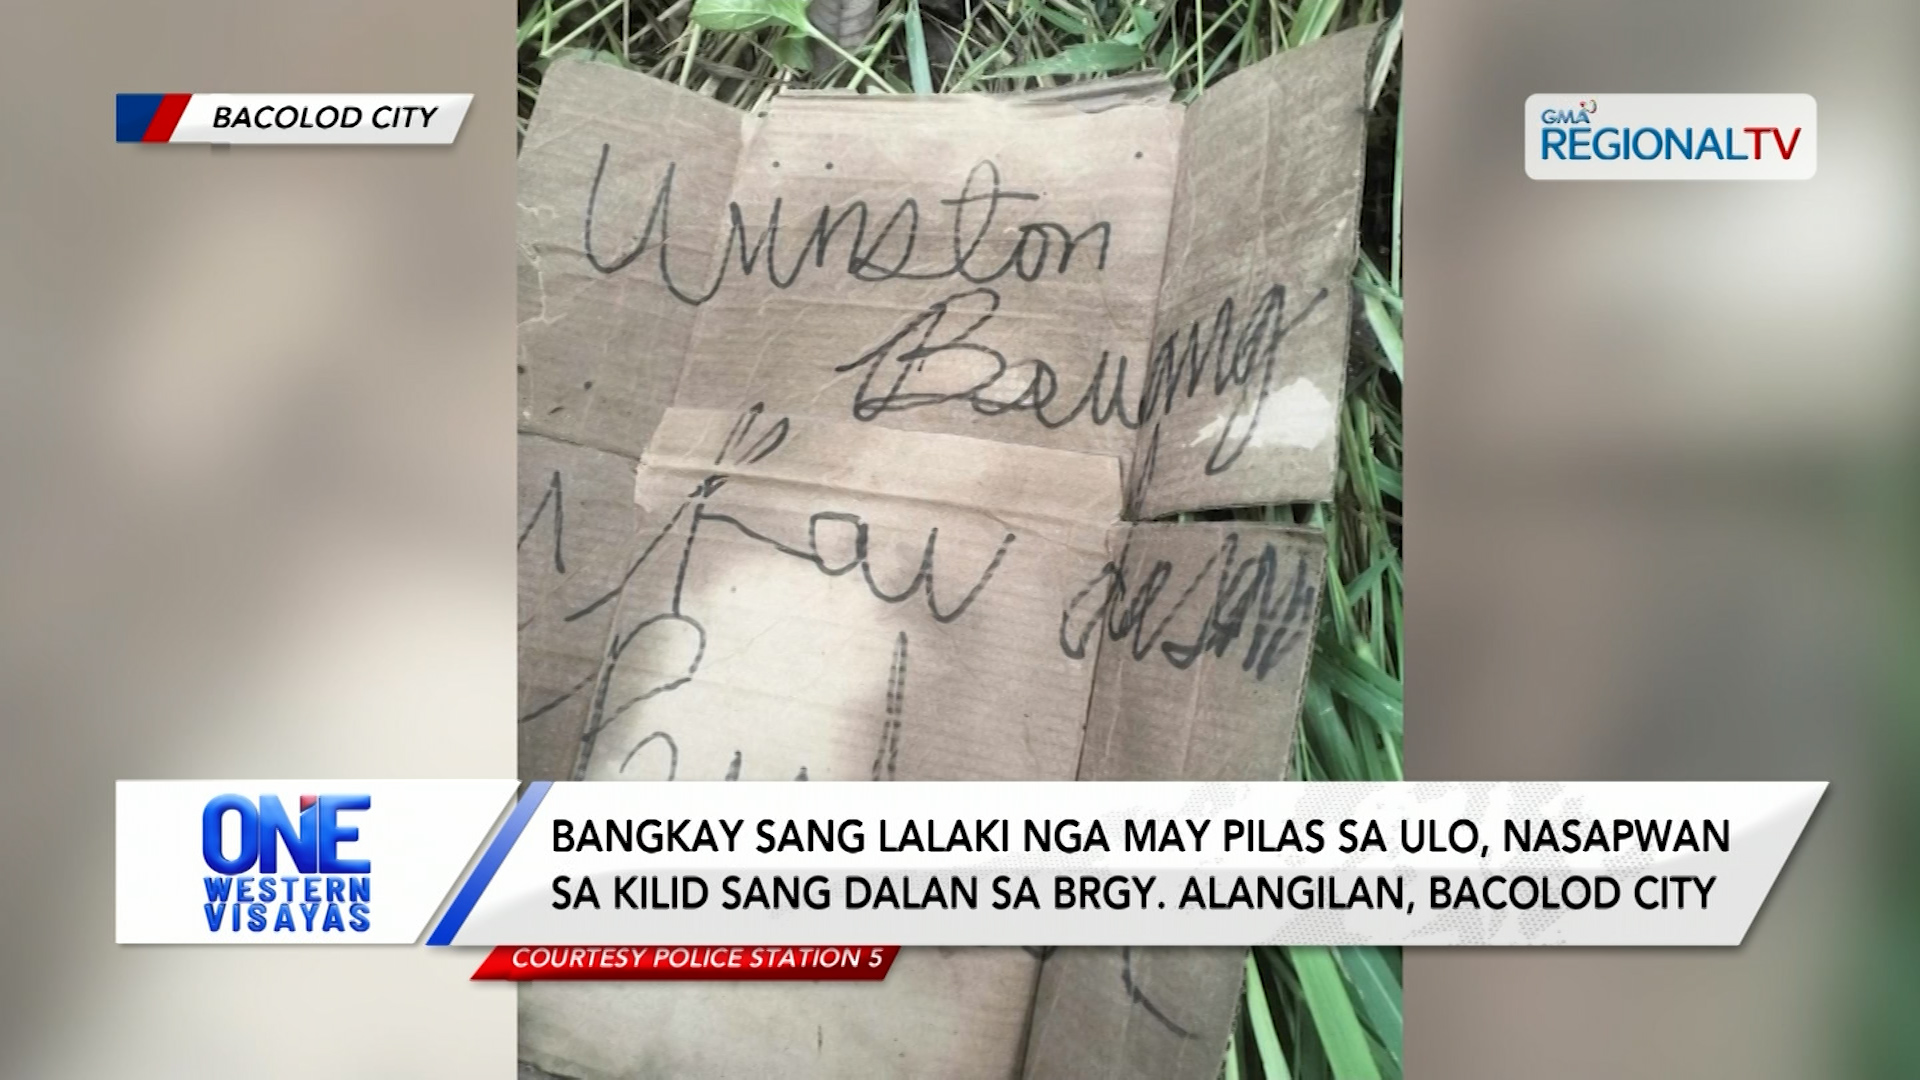 BACOLOD CITY
GMA
REGIONALTV
Winston
Bawang
ikaw
ONE
WESTERN
VISAYAS
BANGKAY SANG LALAKI NGA MAY PILAS SA ULO, NASAPWAN
SA KILID SANG DALAN SA BRGY. ALANGILAN, BACOLOD CITY
COURTESY POLICE STATION 5